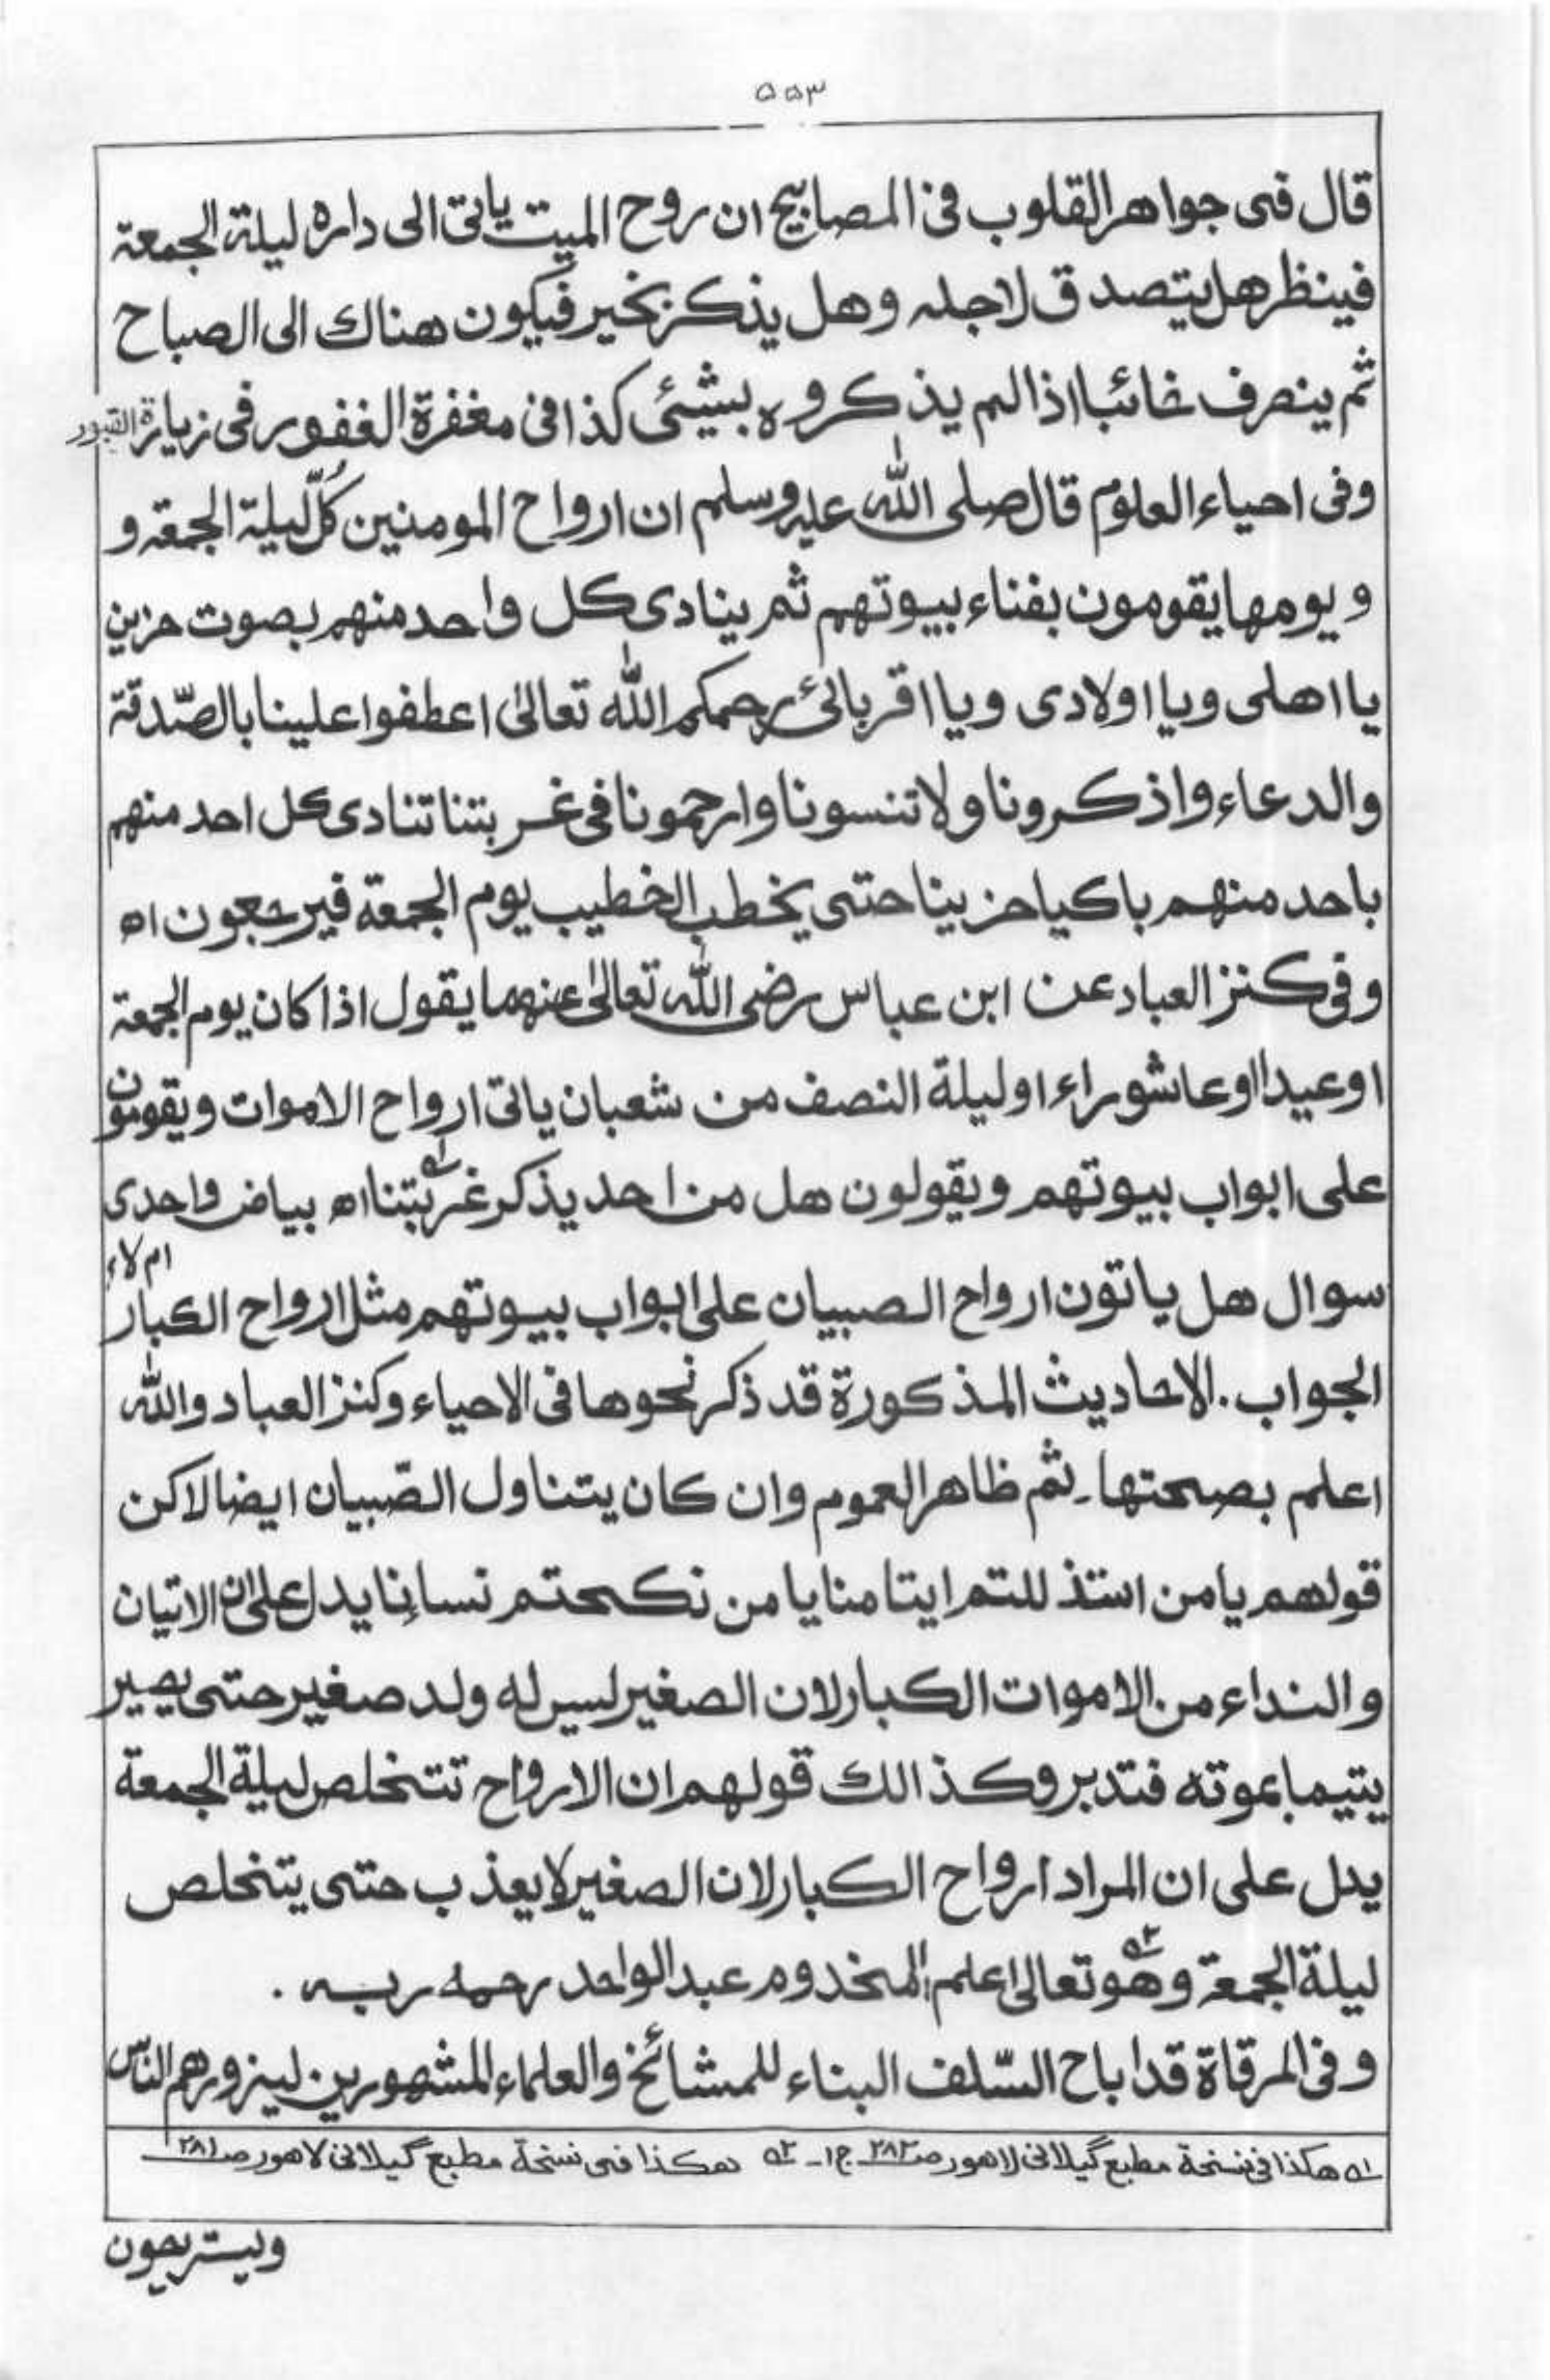 ۵۵۳
قال فى جواهر القلوب فى المصابيح ان روح الميت ياتى الى داره ليلة الجمعة
فينظر هل يتصدق لاجله وهل يذكر بخير فيكون هناك الى الصباح
ثم ينصرف خائبا اذا لم يذكروه بشيئى كذا فى مغفرة الغفور فى زيارة القبور
وفى احياء العلوم قال صلى الله عليه وسلم ان ارواح المومنين كُلّ ليلة الجمعة و
و يومها يقومون بفناء بيوتهم ثم ينادى كل واحد منهم بصوت حزين
يا اهلى ويا اولادى ويا اقربائى رحمكم الله تعالىٰ اعطفوا علينا بالصّدقة
والدعاء واذكرونا ولا تنسونا وارحمونا فى غربتنا تنادى كل احد منهم
باحد منهم باكيا حزينا حتى يخطب الخطيب يوم الجمعة فيرجعون اه
وفى كنز العباد عن ابن عباس رضى الله تعالىٰ عنهما يقول اذا كان يوم الجمعة
او عيدا او عاشوراء او ليلة النصف من شعبان ياتى ارواح الاموات ويقومون
على ابواب بيوتهم ويقولون هل من احد يذكر غربتنا ا؎ اه بياض واحدى
سوال هل ياتون ارواح الصبيان على ابواب بيوتهم مثل ارواح الكبار ام لاء
الجواب. الاحاديث المذكورة قد ذكر نحوها فى الاحياء وكنز العباد والله
اعلم بصحتها۔ ثم ظاهر العموم وان كان يتناول الصّبيان ايضا لاكن
قولهم يا من استذللتم ايتامنا يا من نكحتم نسائنا يدل على ان الاتيان
والنداء من الاموات الكبار لان الصغير ليس له ولد صغير حتى يصير
يتيما بموته فتدبر وكذالك قولهم ان الارواح تتخلص ليلة الجمعة
يدل على ان المراد ارواح الكبار لان الصغير لا يعذب حتى يتخلص
ليلة الجمعة ٢؎ وهو تعالىٰ اعلم المخدوم عبد الواحد رحمه ربه .
وفى المرقاة قد اباح السّلف البناء للمشائخ والعلماء المشهورين ليزورهم الناس
ا؎ هكذا فى نسخة مطبع گيلانى لاهور صـ ٢٨٢ ج ا۔ ٢؎ هكذا فى نسخة مطبع گيلانى لاهور صـ ٢٨١
ويستريحون